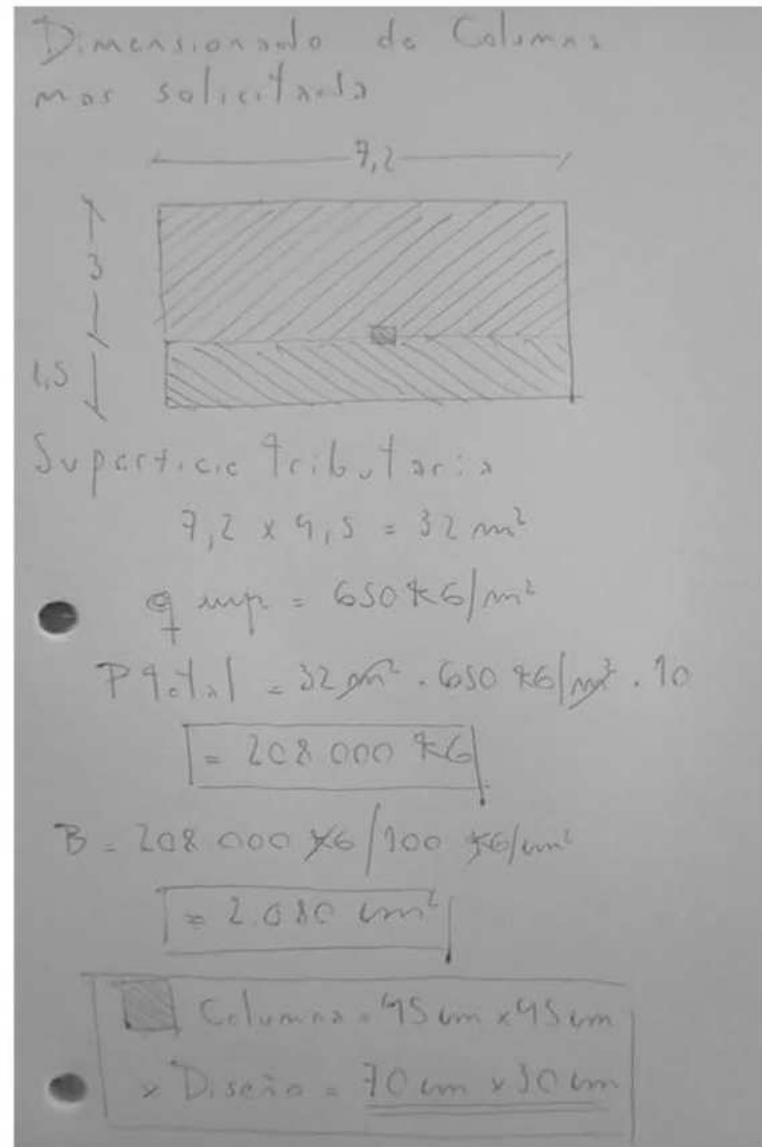 Dimensionado de Columna
mas solicitada
7,2
3
1,5
Superficie Tributaria
7,2 x 4,5 = 32 m²
q = 650 KG/m²
P Total = 32 m² . 650 KG/m² . 10
= 208 000 KG
B = 208 000 KG/100 KG/cm²
= 2.080 cm²
Columna = 45 cm x 45 cm
x Diseño = 70 cm x 30 cm